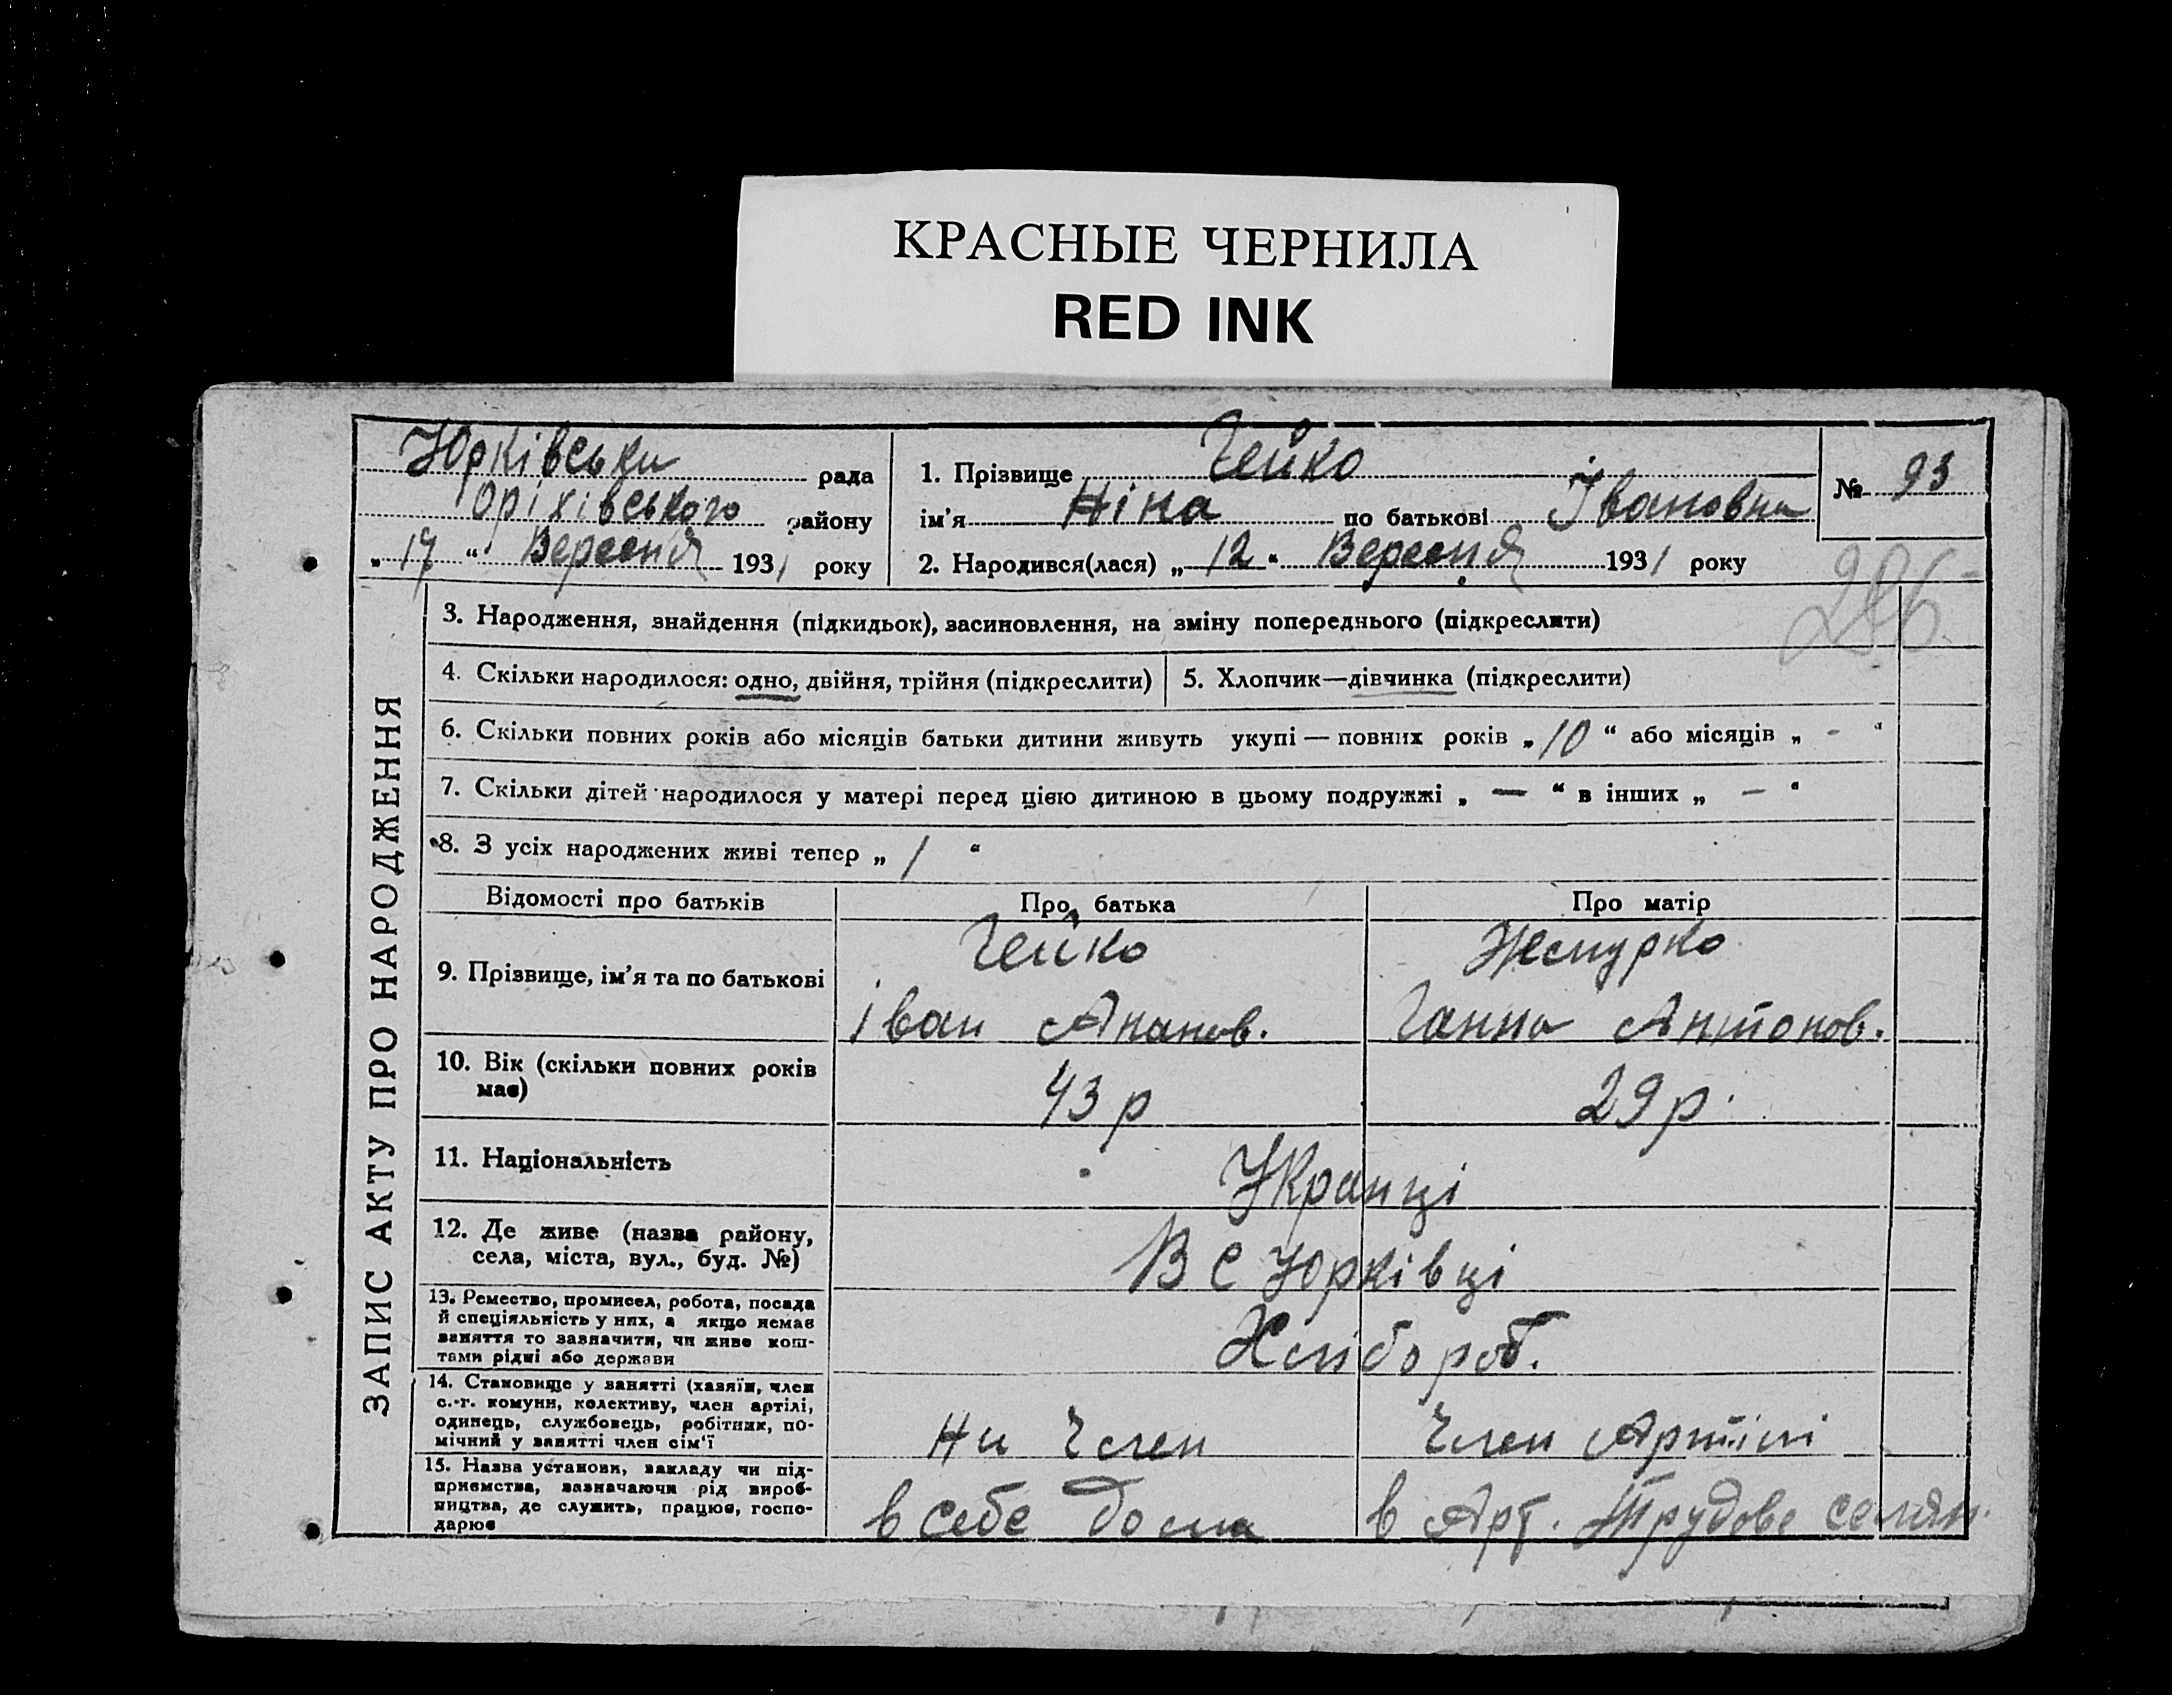 КРАСНЫЕ ЧЕРНИЛА
RED INK
Юрківськи рада
Оріхівського району
„ 17 “ Вересня 1931 року
1. Прізвище Чейко
ім’я Ніна по батькові Івановна
2. Народився(лася) „ 12 “ Вересня 1931 року
№ 93
286
ЗАПИС АКТУ ПРО НАРОДЖЕННЯ
3. Народження, знайдення (підкидьок), засиновлення, на зміну попереднього (підкреслити)
4. Скільки народилося: одно, двійня, трійня (підкреслити)
5. Хлопчик—дівчинка (підкреслити)
6. Скільки повних років або місяців батьки дитини живуть укупі — повних років „ 10 “ або місяців „ - “
7. Скільки дітей народилося у матері перед цією дитиною в цьому подружжі „ — “ в інших „ — “
8. З усіх народжених живі тепер „ 1 “
Відомості про батьків
Про батька
Про матір
9. Прізвище, ім’я та по батькові
Чейко
Іван Апанов.
Ганна Антонов.
10. Вік (скільки повних років
має)
43 р
29 р.
11. Національність
Украиці
12. Де живе (назва району,
села, міста, вул., буд. №)
В с Юрківці
13. Ремество, промисел, робота, посада
й спеціяльність у них, а якщо немає
заняття то зазначити, чи живе кош-
тами рідні або держави
Хлібороб.
14. Становище у занятті (хазяїн, член
с.-г. комуни, колективу, член артілі,
одинець, службовець, робітник, по-
мічний у занятті член сім’ї
Ни Член
Член Артілі
15. Назва установи, закладу чи під-
приємства, зазначаючи рід вироб-
ництва, де служить, працює, госпо-
дарює
в себе дома
в Арт. Трудове селян.